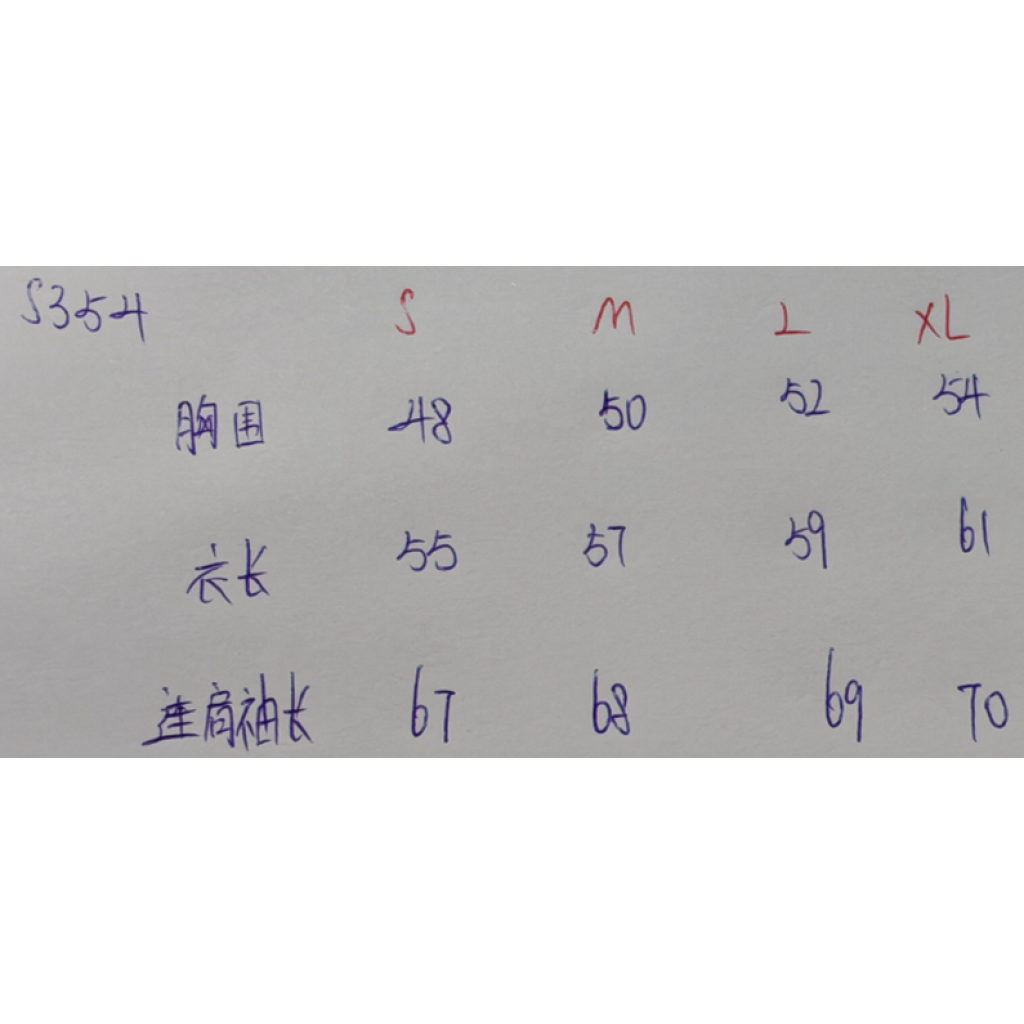 S354 S M L XL
胸围 48 50 52 54
衣长 55 57 59 61
连肩袖长 67 68 69 70